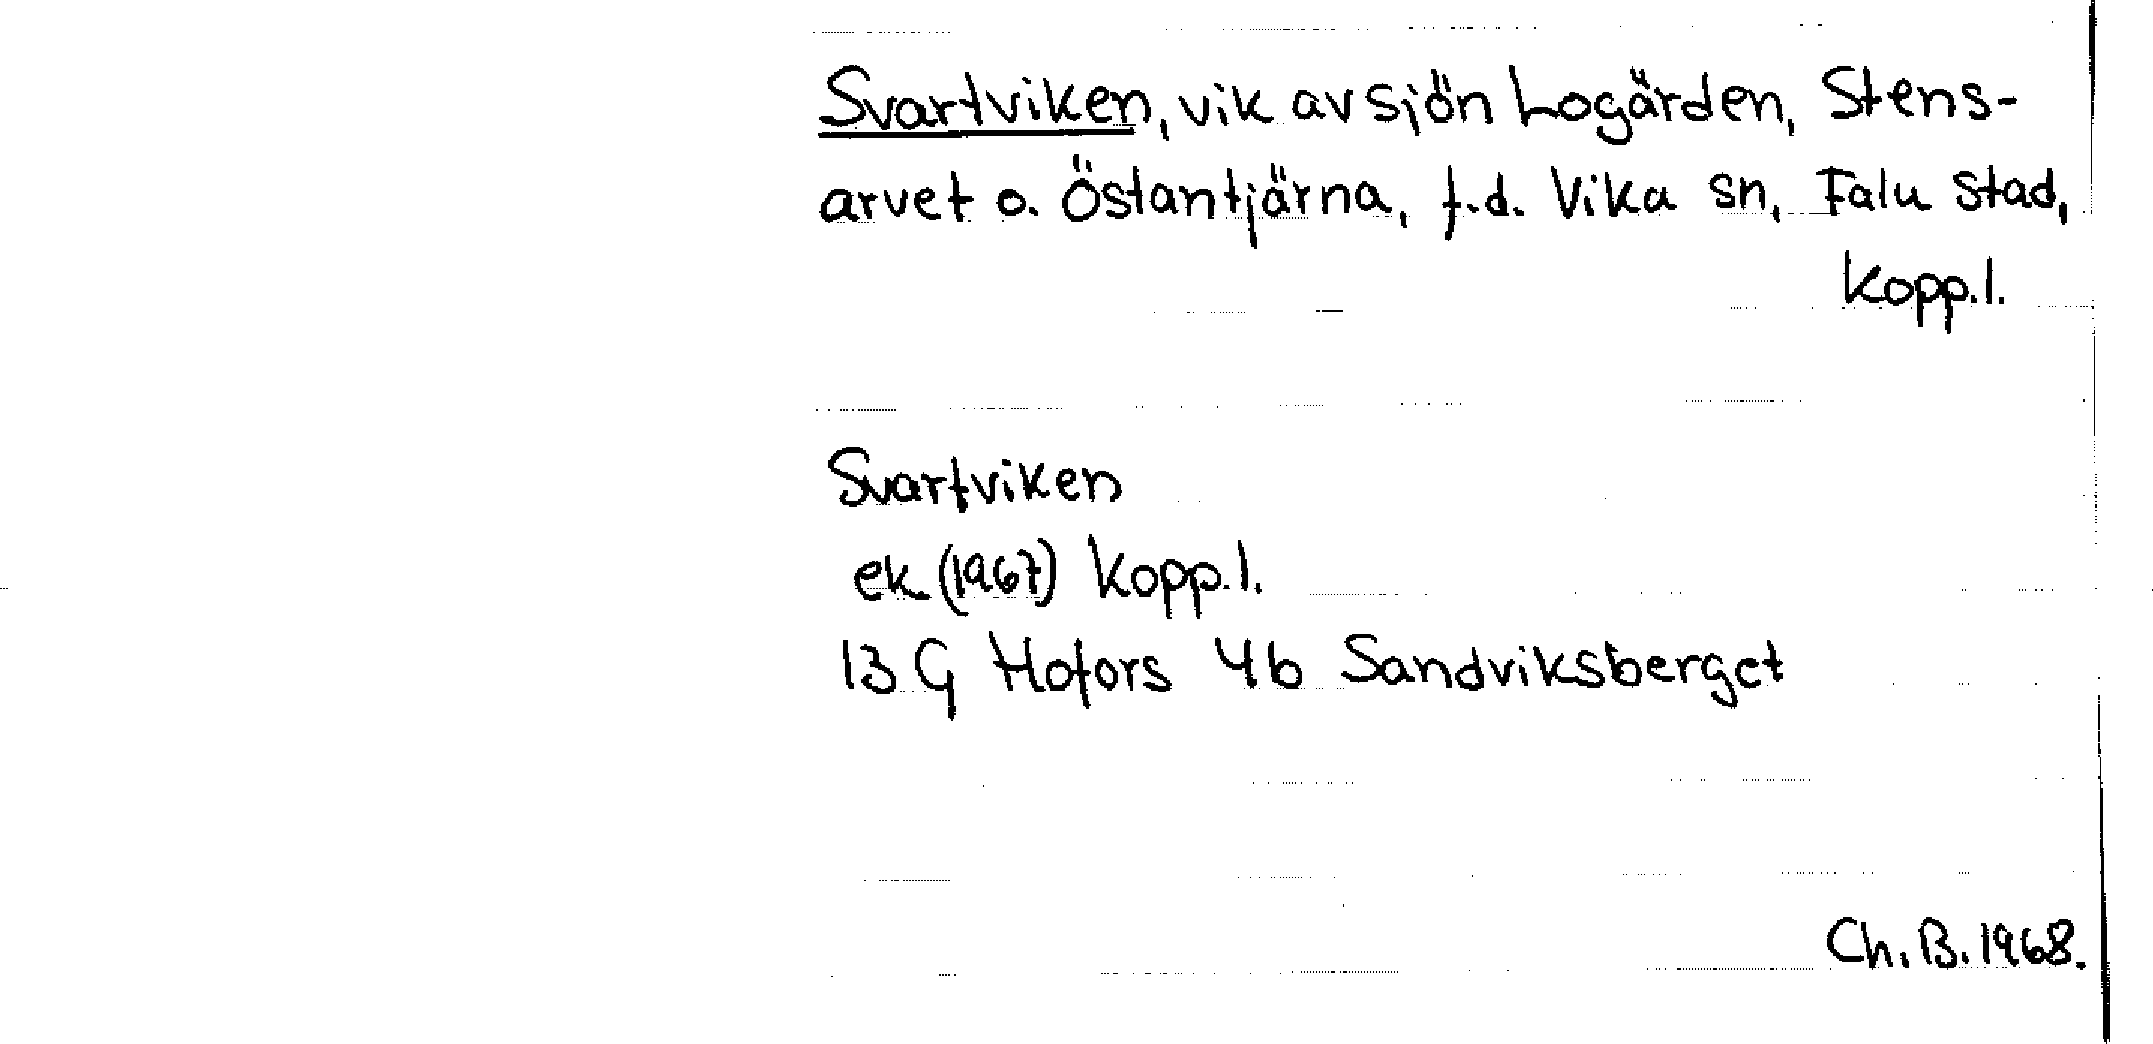 Svartviken, vik av sjön Logärden, Stens-
arvet o. Östantjärna, f.d. Vika sn, Falu stad,
Kopp.l.
Svartviken
ek (1967) Kopp.l.
13 G Hofors 4b Sandviksberget
Ch. B. 1968.